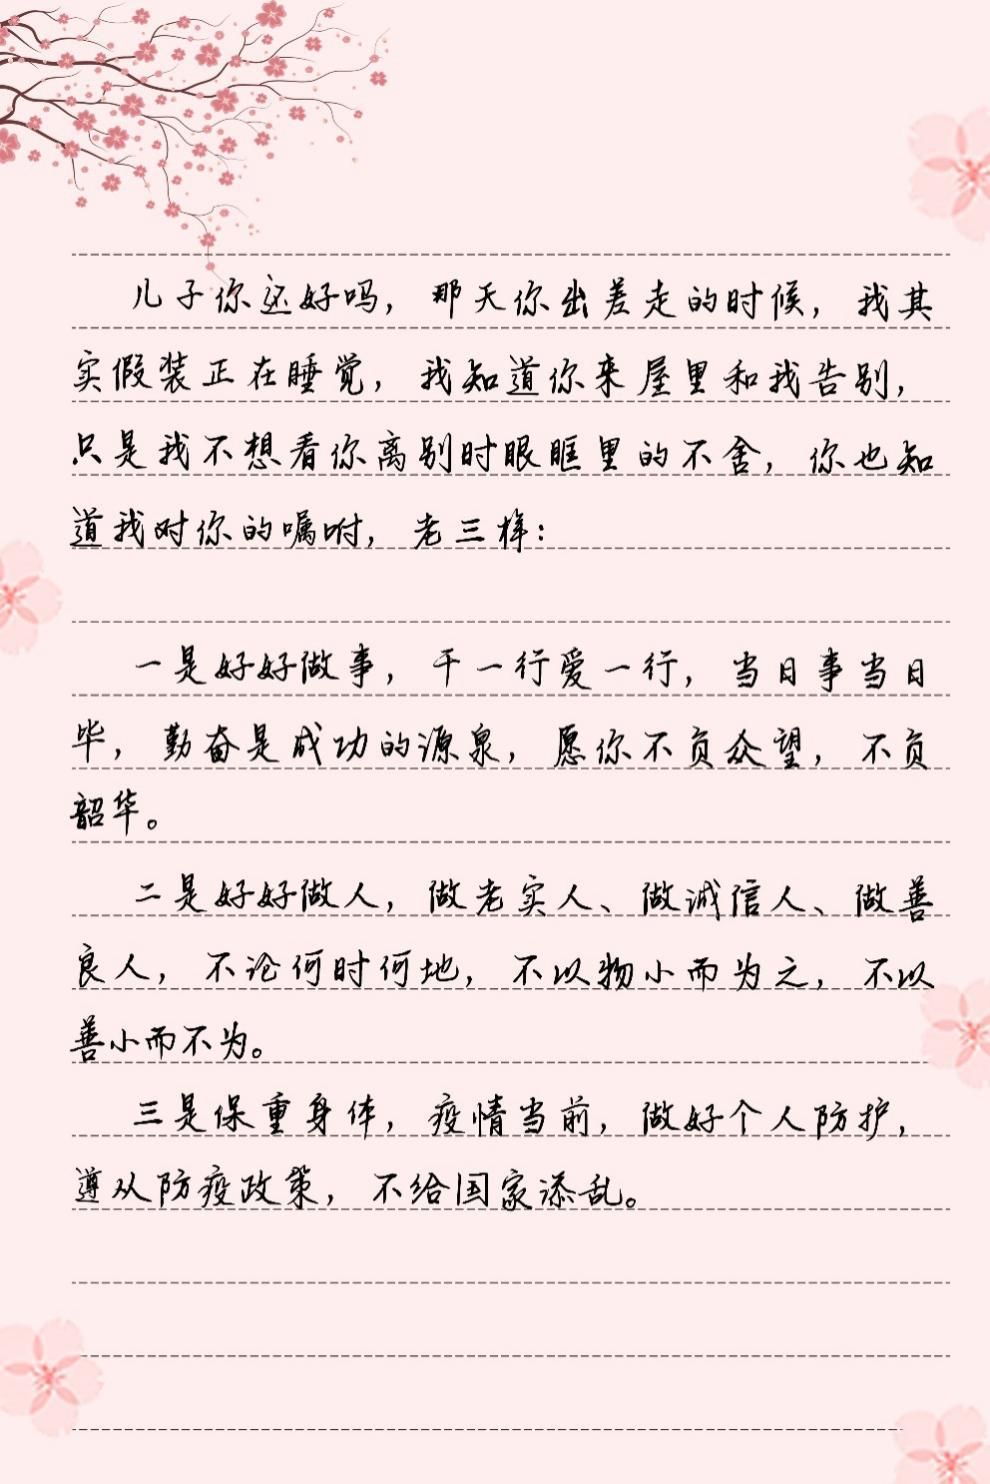 儿子你还好吗，那天你出差走的时候，我其
实假装正在睡觉，我知道你来屋里和我告别，
只是我不想看你离别时眼眶里的不舍，你也知
道我对你的嘱咐，老三样：
一是好好做事，干一行爱一行，当日事当日
毕，勤奋是成功的源泉，愿你不负众望，不负
韶华。
二是好好做人，做老实人、做诚信人、做善
良人，不论何时何地，不以物小而为之，不以
善小而不为。
三是保重身体，疫情当前，做好个人防护，
遵从防疫政策，不给国家添乱。